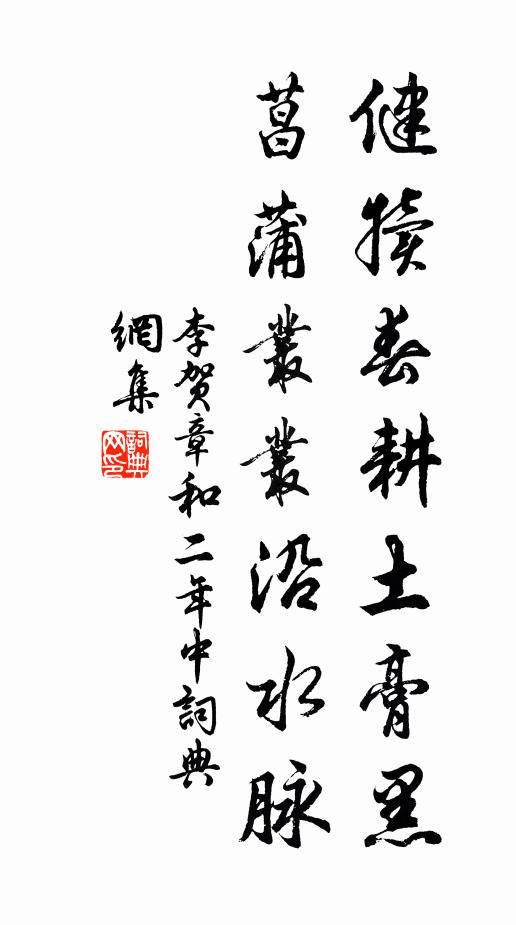 健犢春耕土膏黑
菖蒲叢叢沿水脉
李賀章和二年中詞典
網集
詞典網印